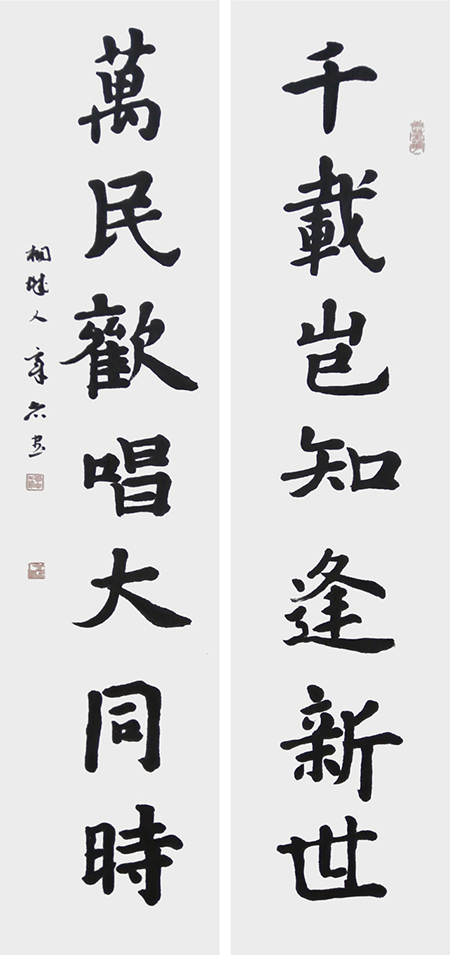 千載岂知逢新世
萬民歡唱大同時
桐城人